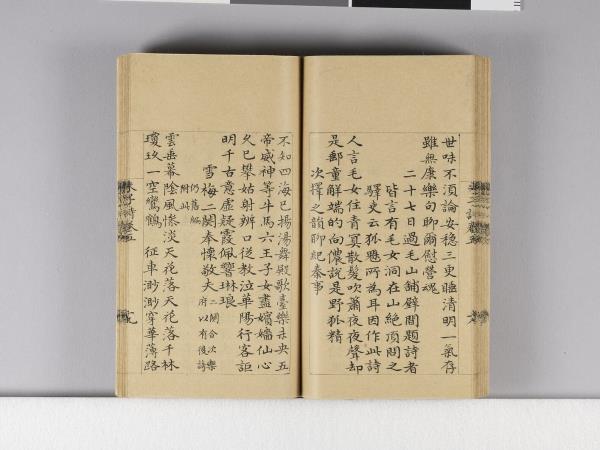 世味不須論安穏三更睡清明一氣存
雖無康樂句聊爾慰營魂
二十七日過毛山鋪壁間題詩者
皆言有毛女洞在山絶頂問之
驛吏云狐魅所為耳因作此詩
人言毛女住青冥散髪吹簫夜夜聲却
是郵童解端的向儂說是野狐精
次擇之韻聊紀秦事
不知四海已揚湯舞殿歌臺樂未央五
帝威神等牛馬六王子女盡嬪嬙仙心
久已攀姑射辨口從教泣華陽行客詎
明千古意虛疑霞佩響琳琅
雪梅二闋奉懷敬夫二闋合次樂
府以有後詩
仍舊編
附此
雲垂幕陰風慘淡天花落天花落千林
瓊玖一空鸞鶴 征車渺渺穿華薄路